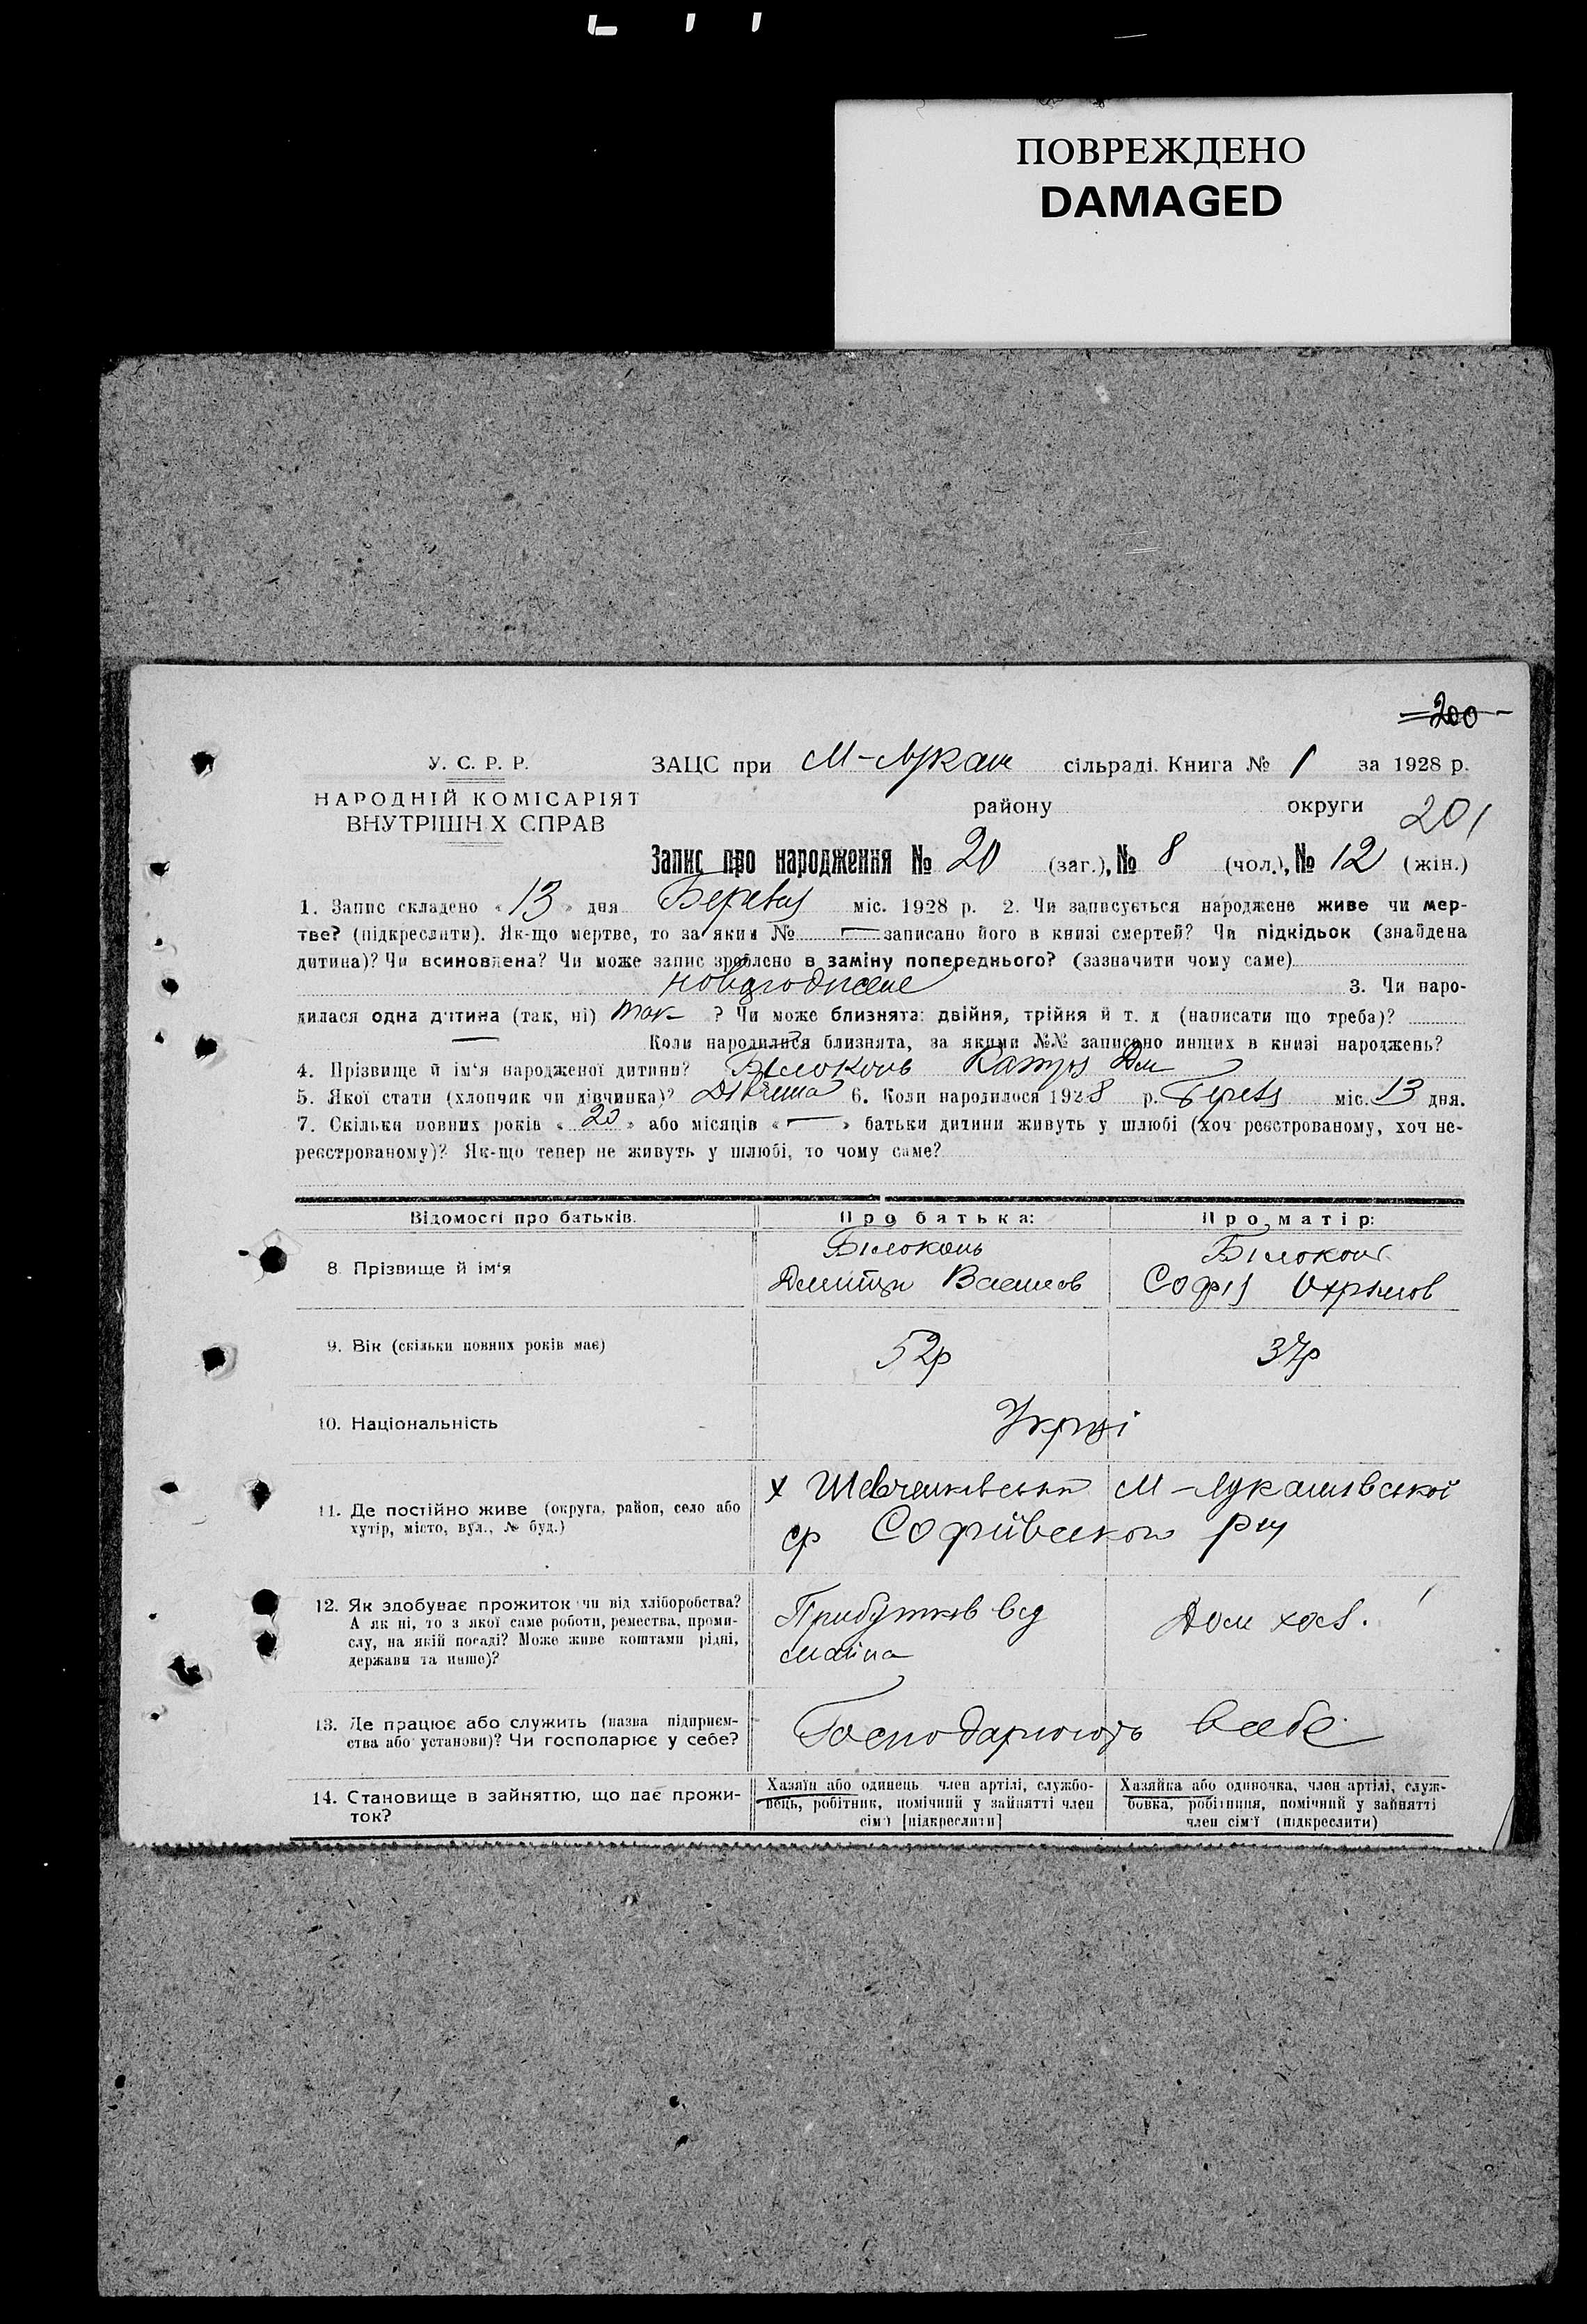 ПОВРЕЖДЕНО
DAMAGED
200
У. С. Р. Р.
НАРОДНІЙ КОМІСАРІЯТ
ВНУТРІШН Х СПРАВ
ЗАЦС при М-Лукаш сільраді. Книга № 1 за 1928 р.
району округи 201
Запис про народження № 20 (заг.), № 8 (чол.), № 12 (жін.)
1. Запис складено « 13 » дня міс. 1928 р. 2. Чи записується народжене живе чи мер-
тве? (підкреслити). Як-що мертве, то за яким № — записано його в книзі смертей? Чи підкідьок (знайдена
дитина)? Чи всиновлена? Чи може запис зроблено в заміну попереднього? (зазначити чому саме)
3. Чи наро-
дилася одна дитина (так, ні) так ? Чи може близнята: двійня, трійня й т. д (написати що треба)?
— Коли народилися близнята, за якими №№ записано инших в книзі народжень?
4. Прізвище й ім'я народженої дитини? Білоконь Катря Дм
5. Якої стати (хлопчик чи дівчинка)? Дівчина 6. Коли народилося 1928 р. міс. 13 дня.
7. Скільки повних років « 20 » або місяців « — » батьки дитини живуть у шлюбі (хоч реєстрованому, хоч не-
реєстрованому)? Як-що тепер не живуть у шлюбі, то чому саме?
Відомості про батьків. Про батька: Про матір:
8. Прізвище й ім'я
Білоконь Білоконь
Дмитри Васильов Софія Охрімов
9. Вік (скільки повних років має) 52р 37р
10. Національність
11. Де постійно живе (округа, район, село або
хутір, місто, вул., № буд.)
х Шевченківськи М-Лукашівської
ср Софіївсько
12. Як здобуває прожиток чи від хліборобства?
А як ні, то з якої саме роботи, ремества, проми-
слу, на якій посаді? Може живе коштами рідні,
держави та инше)?
Прибутків від
майна
Дом хоз.
13. Де працює або служить (назва підприєм-
ства або установи)? Чи господарює у себе?
Господарюють в себе
14. Становище в зайняттю, що дає прожи-
ток?
Хазяїн або одинець, член артілі, службо-
вець, робітник, помічний у зайнятті член
сім'ї [підкреслити]
Хазяйка або одиночка, член артілі, служ-
бовка, робітниця, помічний у зайнятті
член сім'ї (підкреслити)